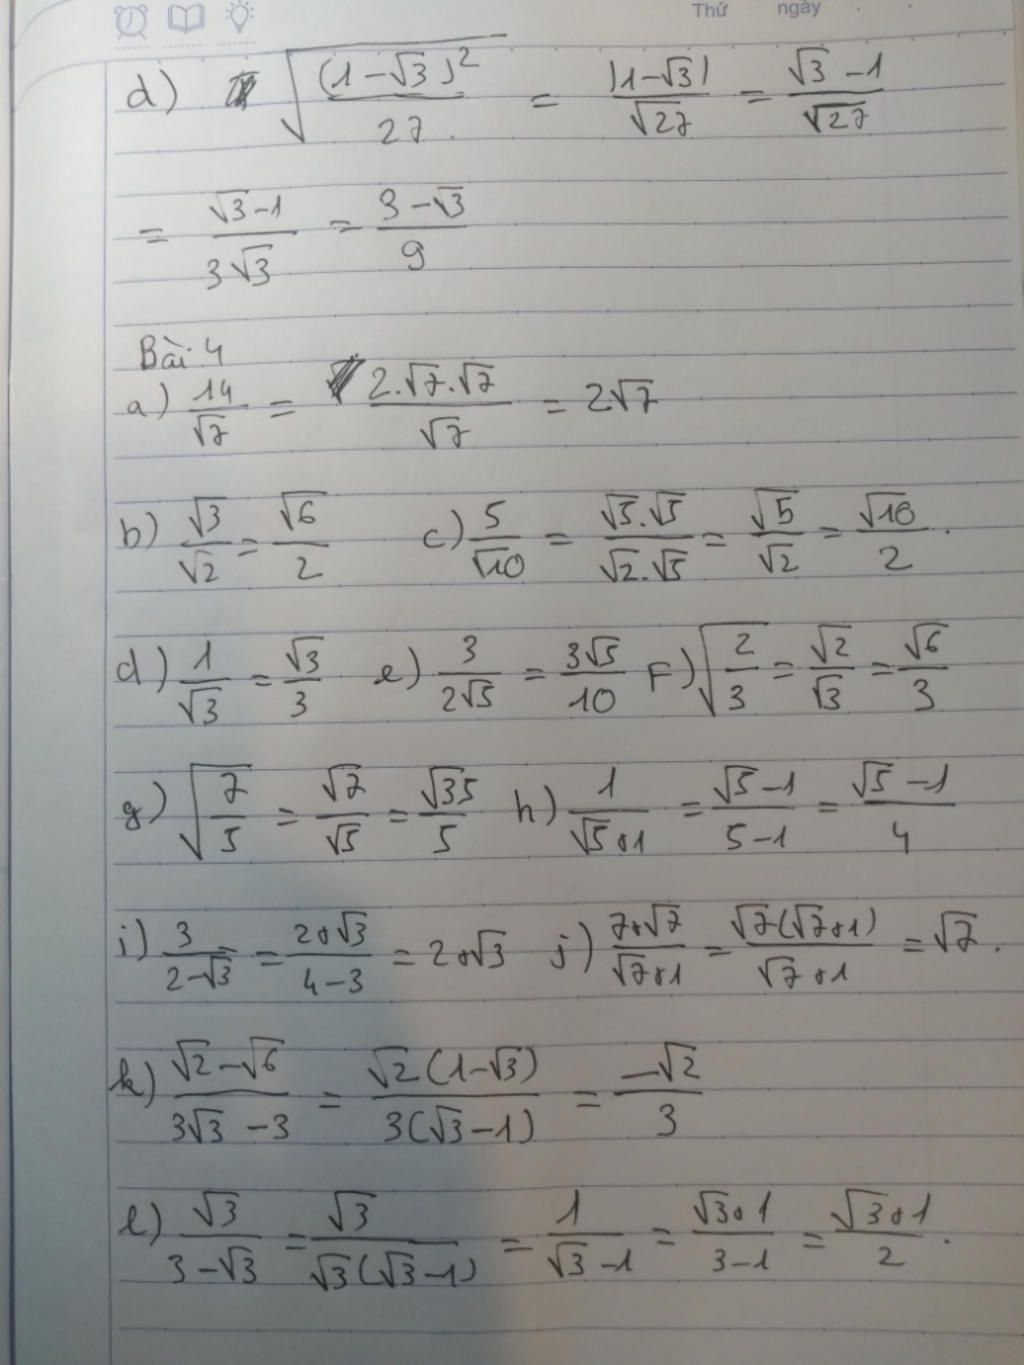 Thứ ngày
d) √((1-√3)²/27) = |1-√3|/√27 = (√3-1)/√27
= (√3-1)/(3√3) = (3-√3)/9
Bài 4
a) 14/√7 = (2.√7.√7)/√7 = 2√7
b) √3/√2 = √6/2 c) 5/√10 = (√5.√5)/(√2.√5) = √5/√2 = √10/2.
d) 1/√3 = √3/3 e) 3/(2√5) = 3√5/10 F) √(2/3) = √2/√3 = √6/3
g) √(7/5) = √7/√5 = √35/5 h) 1/(√5+1) = (√5-1)/(5-1) = (√5-1)/4
i) 3/(2-√3) = (2+√3)/(4-3) = 2+√3 j) (7+√7)/(√7+1) = √7(√7+1)/(√7+1) = √7.
k) (√2-√6)/(3√3-3) = √2(1-√3)/(3(√3-1)) = -√2/3
l) √3/(3-√3) = √3/(√3(√3-1)) = 1/(√3-1) = (√3+1)/(3-1) = (√3+1)/2.